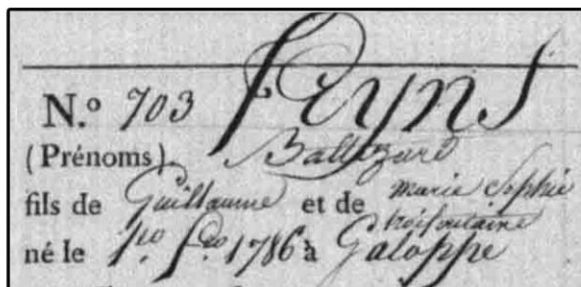 N.º 703 Leyns
(Prénoms) Baltazard
fils de Guillaume et de marie Sophie
troisfontaine
né le 1786 à Galoppe